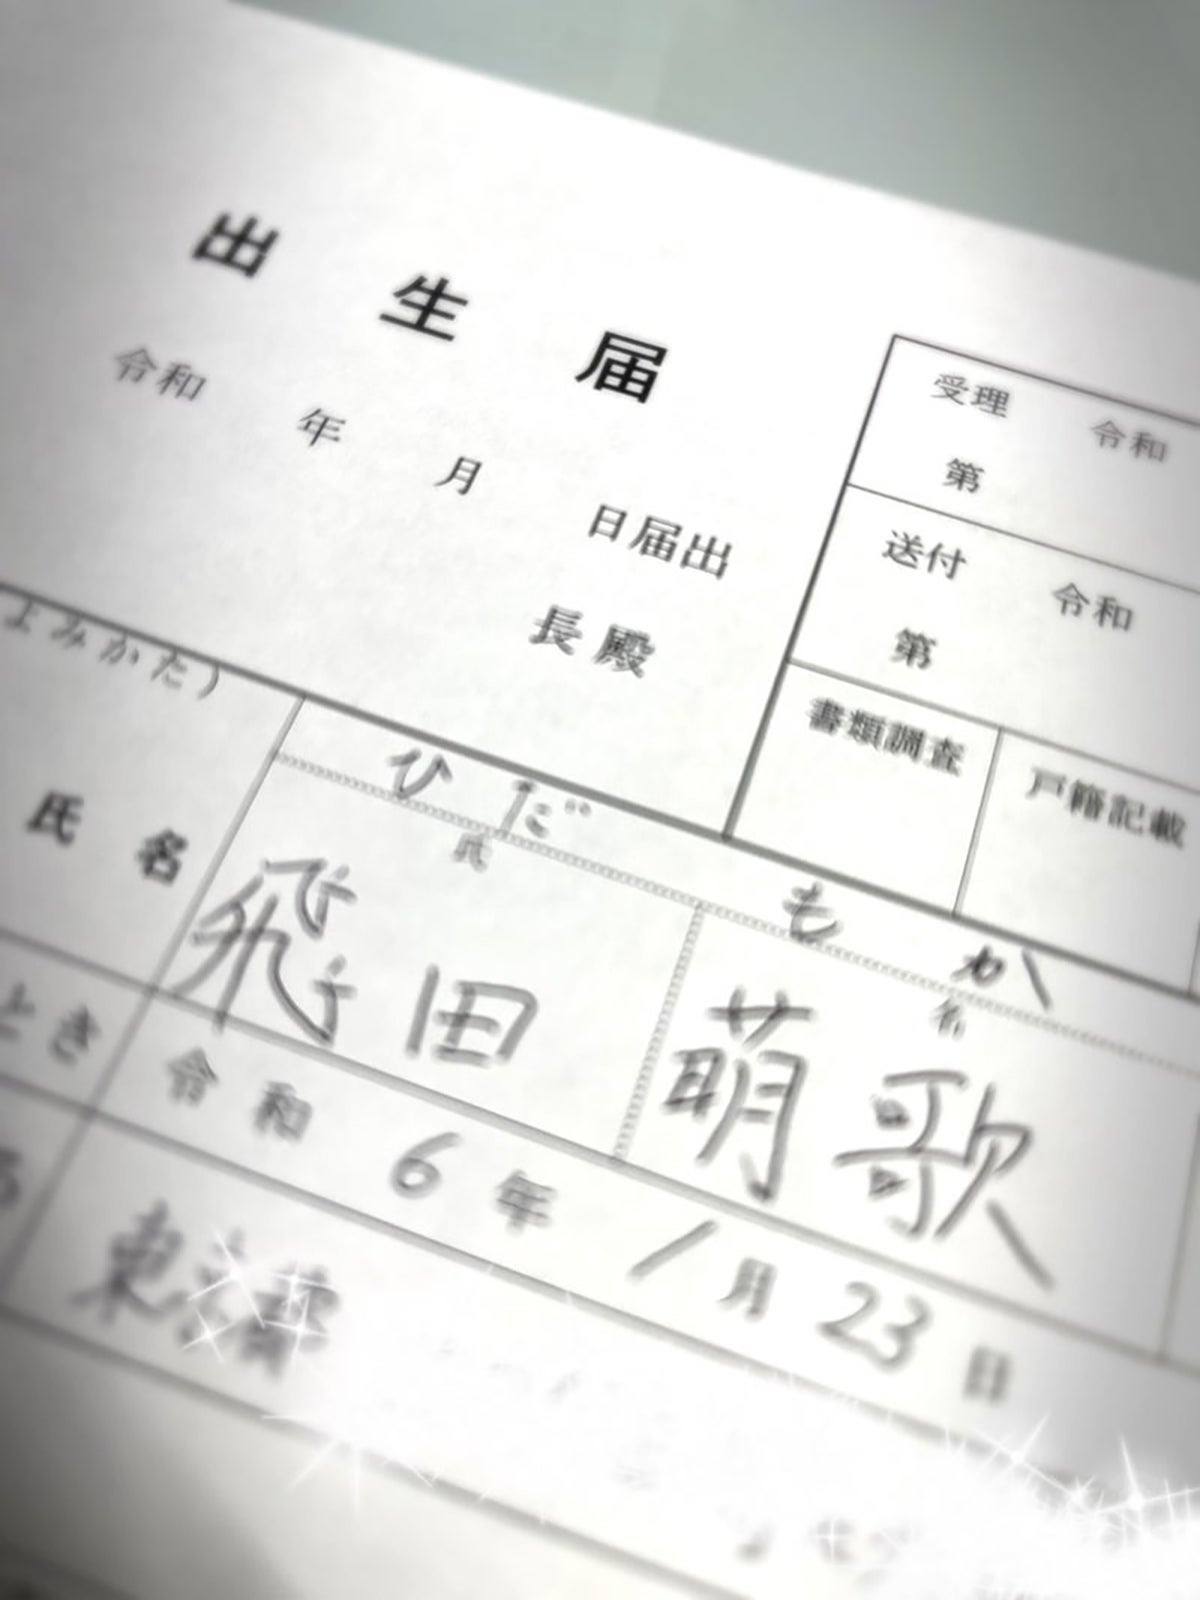 出生届
令和 年 月 日届出
長殿
受理 令和
第
送付 令和
第
書類調査 戸籍記載
よみかた)
ひだ もか
氏 名
氏名
飛田 萌歌
とき
令和 6年 1月 23日
東京都